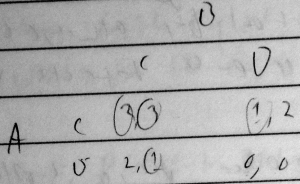 B
C D
A C (3,3) (1, 2
D 2,(1) 0, 0